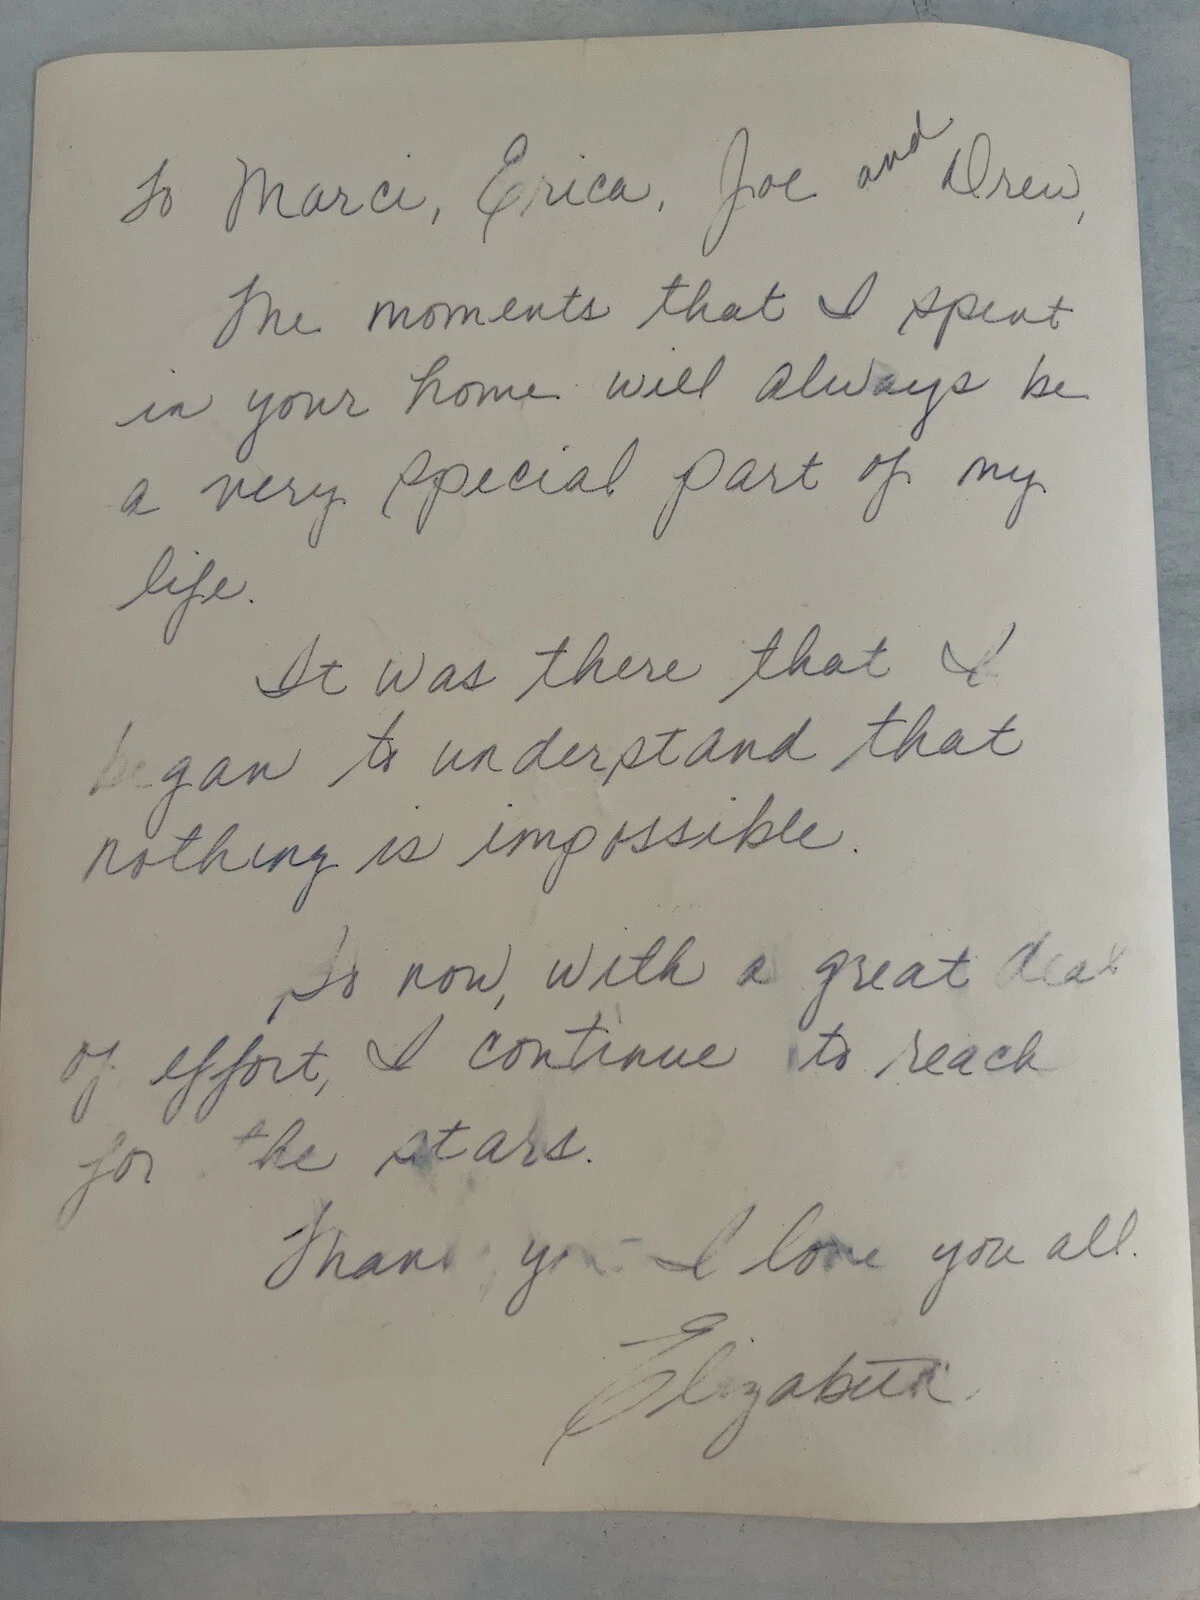 To Marci, Erica, Joe and Drew,
The moments that I spent
in your home will always be
a very special part of my
life.
It was there that I
began to understand that
nothing is impossible.
So now, with a great deal
of effort, I continue to reach
for the stars.
Thank you I love you all.
Elizabeth